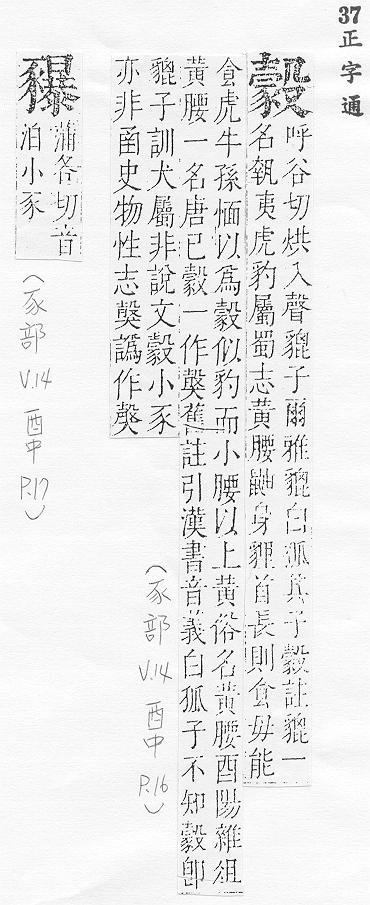 37正字通
豰
呼谷切烘入聲貔子爾雅貔白狐其子豰註貔一
名執夷虎豹屬蜀志黃腰鼬身貍首長則食母能
食虎牛孫愐以爲豰似豹而小腰以上黃俗名黃腰酉陽雜俎
黃腰一名唐已豰一作㺉舊註引漢書音義白狐子不知豰卽
貔子訓犬屬非說文豰小豕
亦非函史物性志㺉譌作
(豕部 V.14 酉中 P.16)
蒲各切音
泊小豕
(豕部 V.14 酉中 P.17)